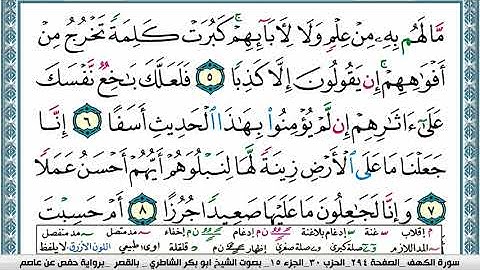 مَّا لَهُم بِهِۦ مِنْ عِلْمٍ وَلَا لِأٓبَآئِهِمْ ۚ كَبُرَتْ كَلِمَةً تَخْرُجُ مِنْ
أَفْوَٰهِهِمْ ۚ إِن يَقُولُونَ إِلَّا كَذِبًا ٥ فَلَعَلَّكَ بَٰخِعٌ نَّفْسَكَ
عَلَىٰٓ ءَاثَٰرِهِمْ إِن لَّمْ يُؤْمِنُوا۟ بِهَٰذَا ٱلْحَدِيثِ أَسَفًا ٦ إِنَّا
جَعَلْنَا مَا عَلَى ٱلْأَرْضِ زِينَةً لَّهَا لِنَبْلُوَهُمْ أَيُّهُمْ أَحْسَنُ عَمَلًا
٧ وَإِنَّا لَجَٰعِلُونَ مَا عَلَيْهَا صَعِيدًا جُرُزًا ٨ أَمْ حَسِبْتَ
م إقلاب س غنة س إدغام بلاغنة ن م إدغام ن م إخفاء مد متصل مد منفصل
المد اللازم صلة كبرى وے صلة صغرى إظهار ن م قلقلة اوى طبيعي اللون الأزرق لا يلفظ
سورة الكهف _ الصفحة ٢٩٤ _ الحزب ٣٠ _ الجزء ١٥ _ بصوت الشيخ ابو بكر الشاطري _ بالقصر _ برواية حفص عن عاصم